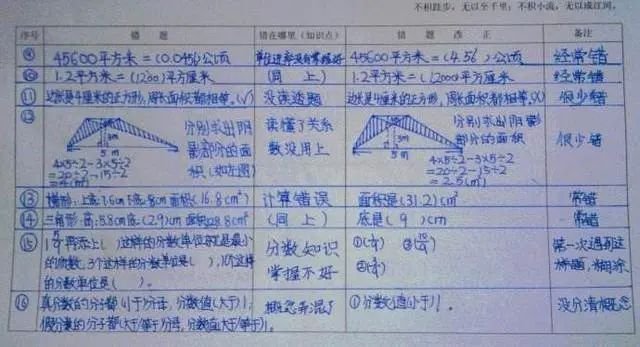 不积跬步，无以至千里；不积小流，无以成江河。
序号 错题 错在哪里（知识点） 错题改正 备注
⑨ 45600平方米=(0.0456)公顷 45600平方米=(4.56)公顷 经常错
⑩ 1.2平方米=(1200)平方厘米 (同上) 1.2平方米=(12000)平方厘米 经常错
⑪ 边长是4厘米的正方形，周长面积都相等。(√) 没读透题 边长是4厘米的正方形，周长面积都相等。(×) 很少错
⑫ 分别求出阴
影部分的面
积(如左图)
3m
5m
4×5÷2-3×5÷2
=20÷2-15÷2
读懂了关系
数没用上
分别求出阴影
部分的面积
3m
5m
4×5÷2-3×5÷2
=20÷2-15÷2
=2.5(m²)
很少错
⑬ 面积(16.8cm²) 计算错误 面积是(31.2)cm² 常错
⑭ 三角形:高:5.8cm底:(2.9)cm (同上) 底是(9)cm 常错
⑮ 这样的分数单位就是最小
的质数，3个这样的分数单位是( )，
的分数单位是( )。
分数知识
掌握不好
第一次遇到这
种题，糊涂
⑯ 真分数的分子都(小于)分母，分数值(大于)1；
假分数的分子都(大于/等于)分母，分数值(大于/等于)1。
概念弄混了
①分数值(小于)1。
没分清概念